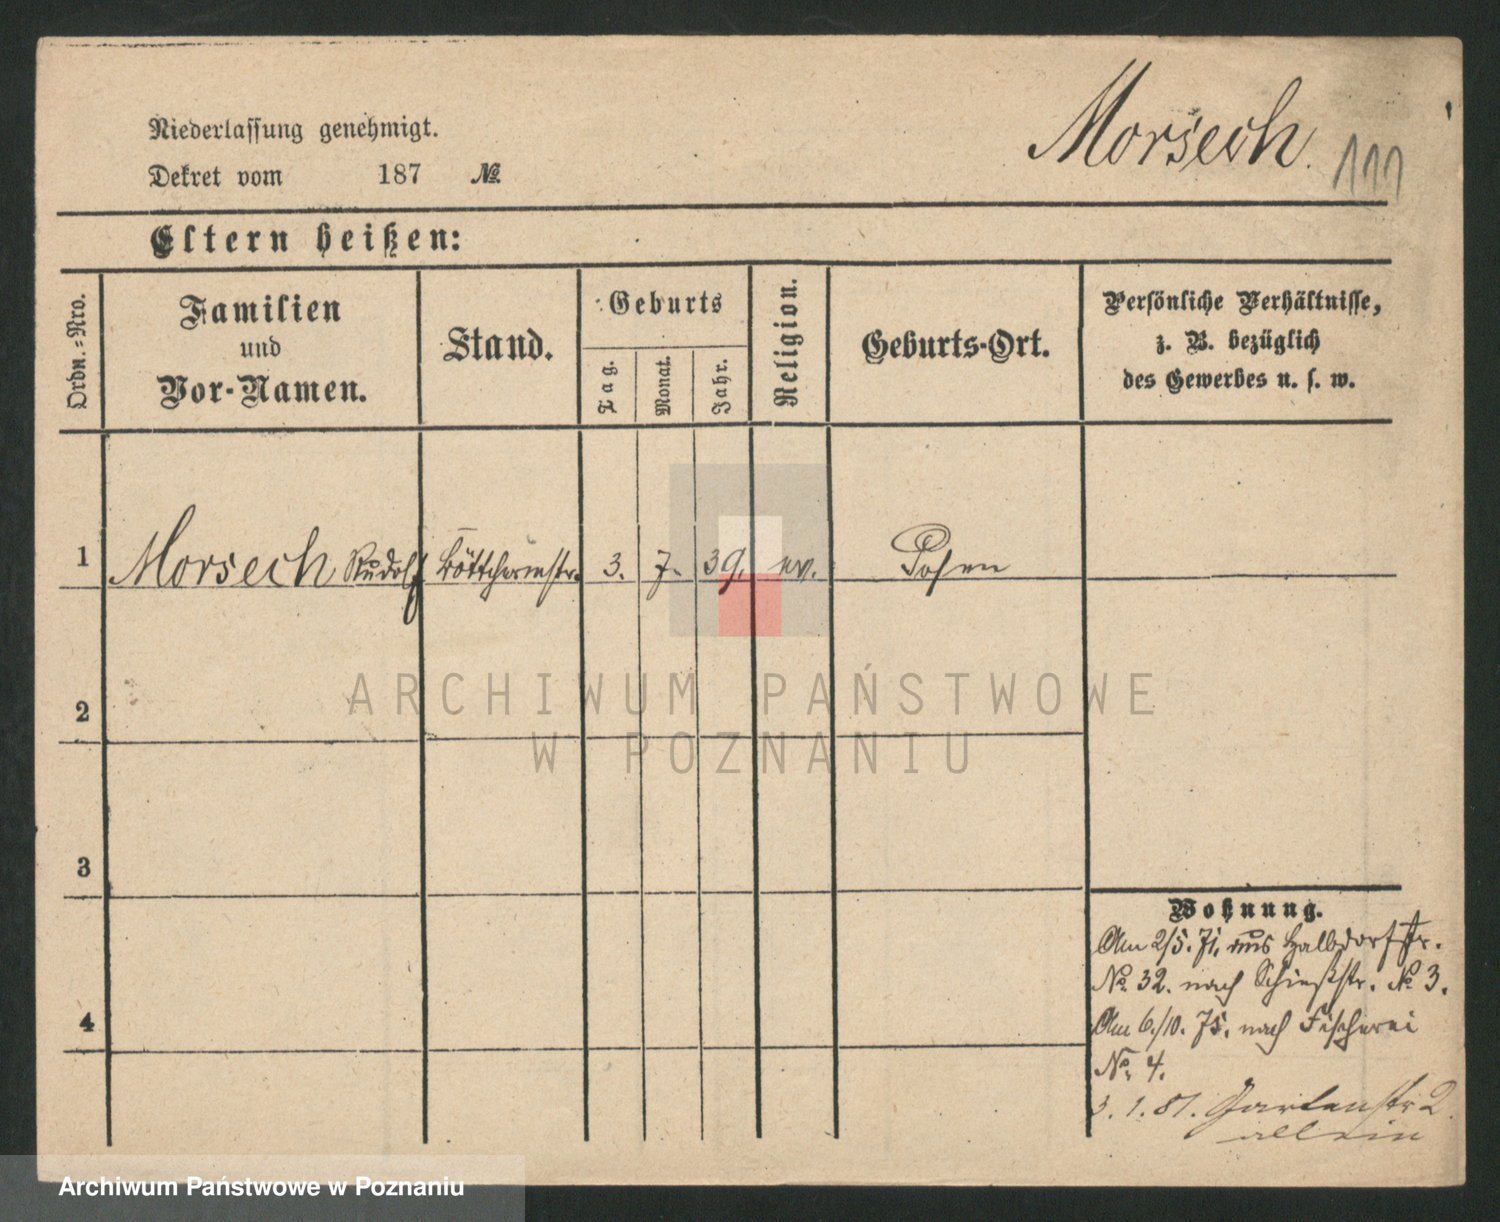 Morsech.
111
Niederlassung genehmigt.
Dekret vom 187 №.
Eltern heißen:
Ordn.-Nro.
Familien
und
Vor-Namen.
Stand.
Geburts
Tag.
Monat.
Jahr.
Religion.
Geburts-Ort.
Persönliche Verhältnisse,
z. B. bezüglich
des Gewerbes u. s. w.
1 Morsech Rudolf Böttchermstr. 3. 7. 39. ev. Posen
2
3
4
Wohnung.
Am 2/5. 71. aus Halbdorfstr.
No. 32. nach Schießstr. No 3.
Am 6./10. 75. nach Fischerei
No. 4.
3. 1. 81. Gartenstr 2
allein
ARCHIWUM PAŃSTWOWE
W POZNANIU
Archiwum Państwowe w Poznaniu